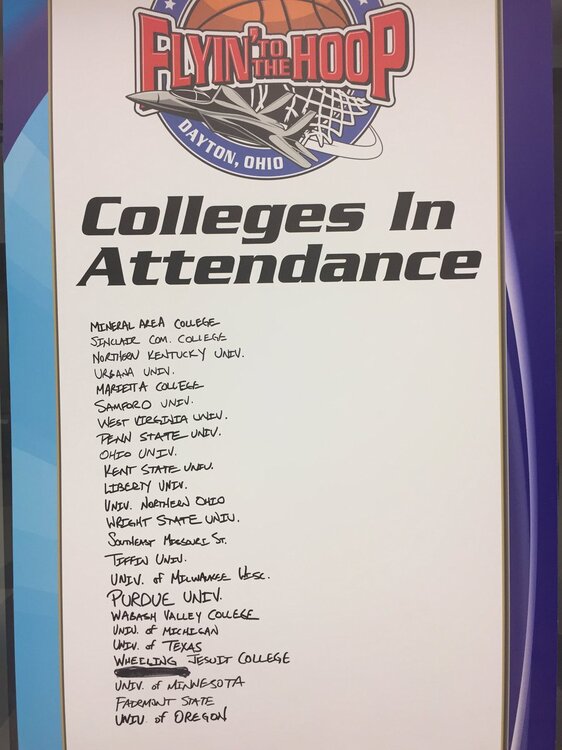 FLYIN' TO THE HOOP
DAYTON, OHIO
Colleges In
Attendance
MINERAL AREA COLLEGE
SINCLAIR COM. COLLEGE
NORTHERN KENTUCKY UNIV.
URBANA UNIV.
MARIETTA COLLEGE
SAMFORD UNIV.
WEST VIRGINIA UNIV.
PENN STATE UNIV.
OHIO UNIV.
KENT STATE UNIV.
LIBERTY UNIV.
UNIV. NORTHERN OHIO
WRIGHT STATE UNIV.
SOUTHEAST MISSOURI ST.
TIFFIN UNIV.
UNIV. of MILWAUKEE WISC.
PURDUE UNIV.
WABASH VALLEY COLLEGE
UNIV. of MICHIGAN
UNIV. of TEXAS
WHEELING JESUIT COLLEGE
UNIV. of MINNESOTA
FAIRMONT STATE
UNIV. of OREGON